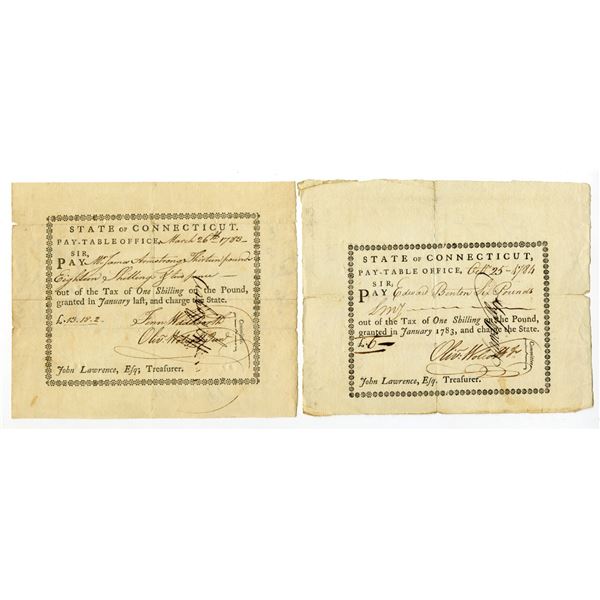 STATE OF CONNECTICUT.
PAY-TABLE OFFICE, March 26th 1783-
SIR,
PAY Mr James Armstrong Thirteen pound
Eighteen Shillings & two pence
out of the Tax of One Shilling on the Pound,
granted in January last, and charge the State.
£.13.18.2.
Fenn Wadsworth
John Lawrence, Esq; Treasurer.
STATE OF CONNECTICUT,
PAY-TABLE OFFICE, 25-1784
SIR,
PAY Edward Benton Six Pounds
only
out of the Tax of One Shilling on the Pound,
granted in January 1783, and charge the State.
£.6-
John Lawrence, Esq. Treasurer.